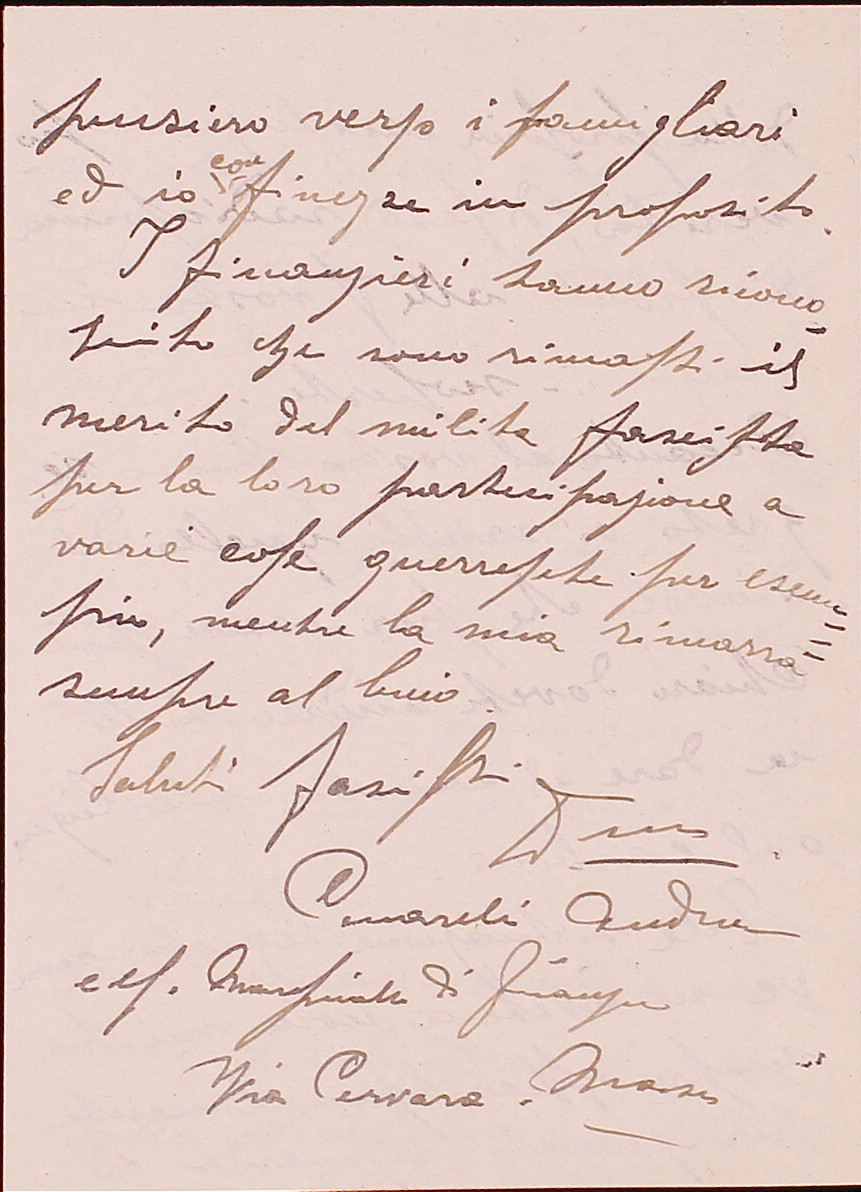 pensiero verso i famigliari
ed io con finezze in proposito.
I finanzieri hanno ricono=
sciuto che sono rimasti il
merito del milite fascista
per la loro partecipazione a
varie cose guerresche per esem=
pio, mentre la mia rimarrà=
sempre al buio.
Saluti fascisti
Andrea
e ef. Maresciallo di Finanza
Via Cervara. Massa